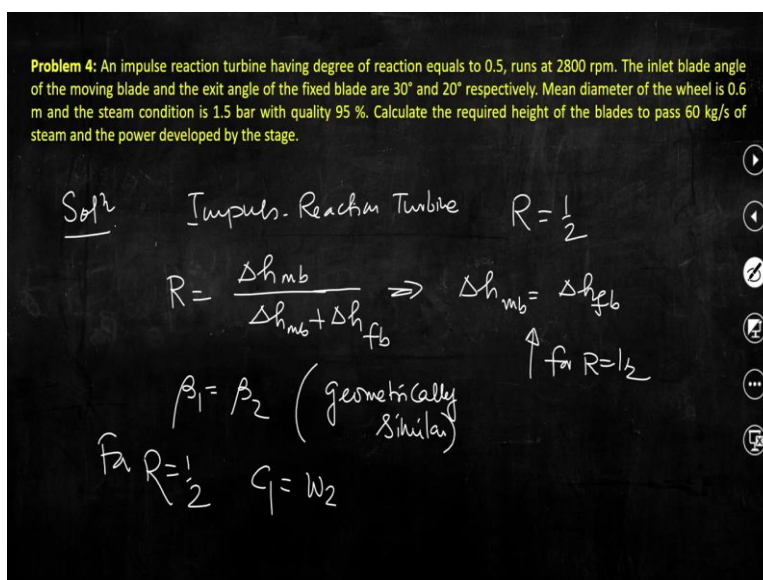 Problem 4: An impulse reaction turbine having degree of reaction equals to 0.5, runs at 2800 rpm. The inlet blade angle
of the moving blade and the exit angle of the fixed blade are 30° and 20° respectively. Mean diameter of the wheel is 0.6
m and the steam condition is 1.5 bar with quality 95 %. Calculate the required height of the blades to pass 60 kg/s of
steam and the power developed by the stage.
Solⁿ Impuls-Reaction Turbine R = 1/2
R = Δh_mb / (Δh_mb + Δh_fb) => Δh_mb = Δh_fb
↑ for R = 1/2
β₁ = β₂ (geometrically
similar)
For R = 1/2 C₁ = W₂